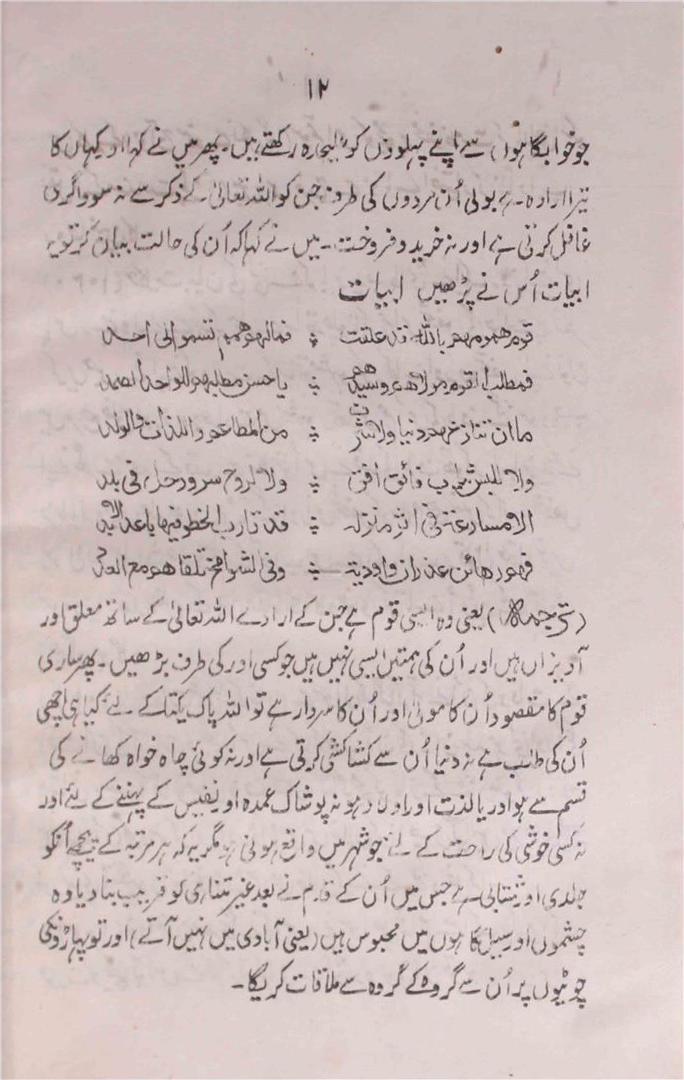 ۱۲
جو خوابگاہوں سے اپنے پہلوؤں کو علیحدہ رکھتے ہیں۔ پھر میں نے کہا اور کہاں کا
تیرا ارادہ ہے بولی اُن مردوں کی طرف جن کو اللہ تعالیٰ کے ذکر سے نہ سوداگری
غافل کرتی ہے اور نہ خرید و فروخت۔ میں نے کہا کہ اُن کی حالت بیان کر تو یہ
ابیات اُس نے پڑھیں ابیات
قوم همومهم بالله قد علقت ؞ فما لهم همم تسموالی احد
فمطلب القوم مولاهم وسیدهم ؞ یا حسن مطلبهم للواحد الصمد
ما ان تنازعهم دنیا ولا شرف ؞ من المطاعم واللذات والولد
ولا للبس ثیاب فائق انق ؞ ولا لروح سرور حل فی بلد
الا مسارعة فی اثر منزلة ؞ قد قارب الخطو فیها باعد الابد
فهم رهائن غدران واودیة ؞ وفی الشوامخ تلقاهم مع العدد
(ترجمہ) یعنی وہ ایسی قوم ہے جن کے ارادے اللہ تعالیٰ کے ساتھ معلق اور
آویزاں ہیں اور اُن کی ہمتیں ایسی نہیں ہیں جو کسی اور کی طرف بڑھیں۔ پھر ساری
قوم کا مقصود اُن کا مولیٰ اور اُن کا سردار ہے تو اللہ پاک یکتا کے لئے کیا ہی اچھی
اُن کی طلب ہے نہ دنیا اُن سے کشاکشی کرتی ہے اور نہ کوئی چاہ خواہ کھانے کی
قسم سے ہو اور یا لذت اور اولاد ہو نہ پوشاک عمدہ اور نفیس کے پہننے کے لئے اور
نہ کسی خوشی کی راحت کے لئے جو شہر میں واقع ہوئی ہو مگر یہ کہ ہر مرتبہ کے پیچھے اُنکو
جلدی اور شتابی ہے جس میں اُن کے قدم نے بعد غیر متناہی کو قریب بنا دیا وہ
چشموں اور سیل گاہوں میں محبوس ہیں (یعنی آبادی میں نہیں آتے) اور تو پہاڑونکی
چوٹیوں پر اُن سے گروہ کے گروہ سے ملاقات کریگا۔